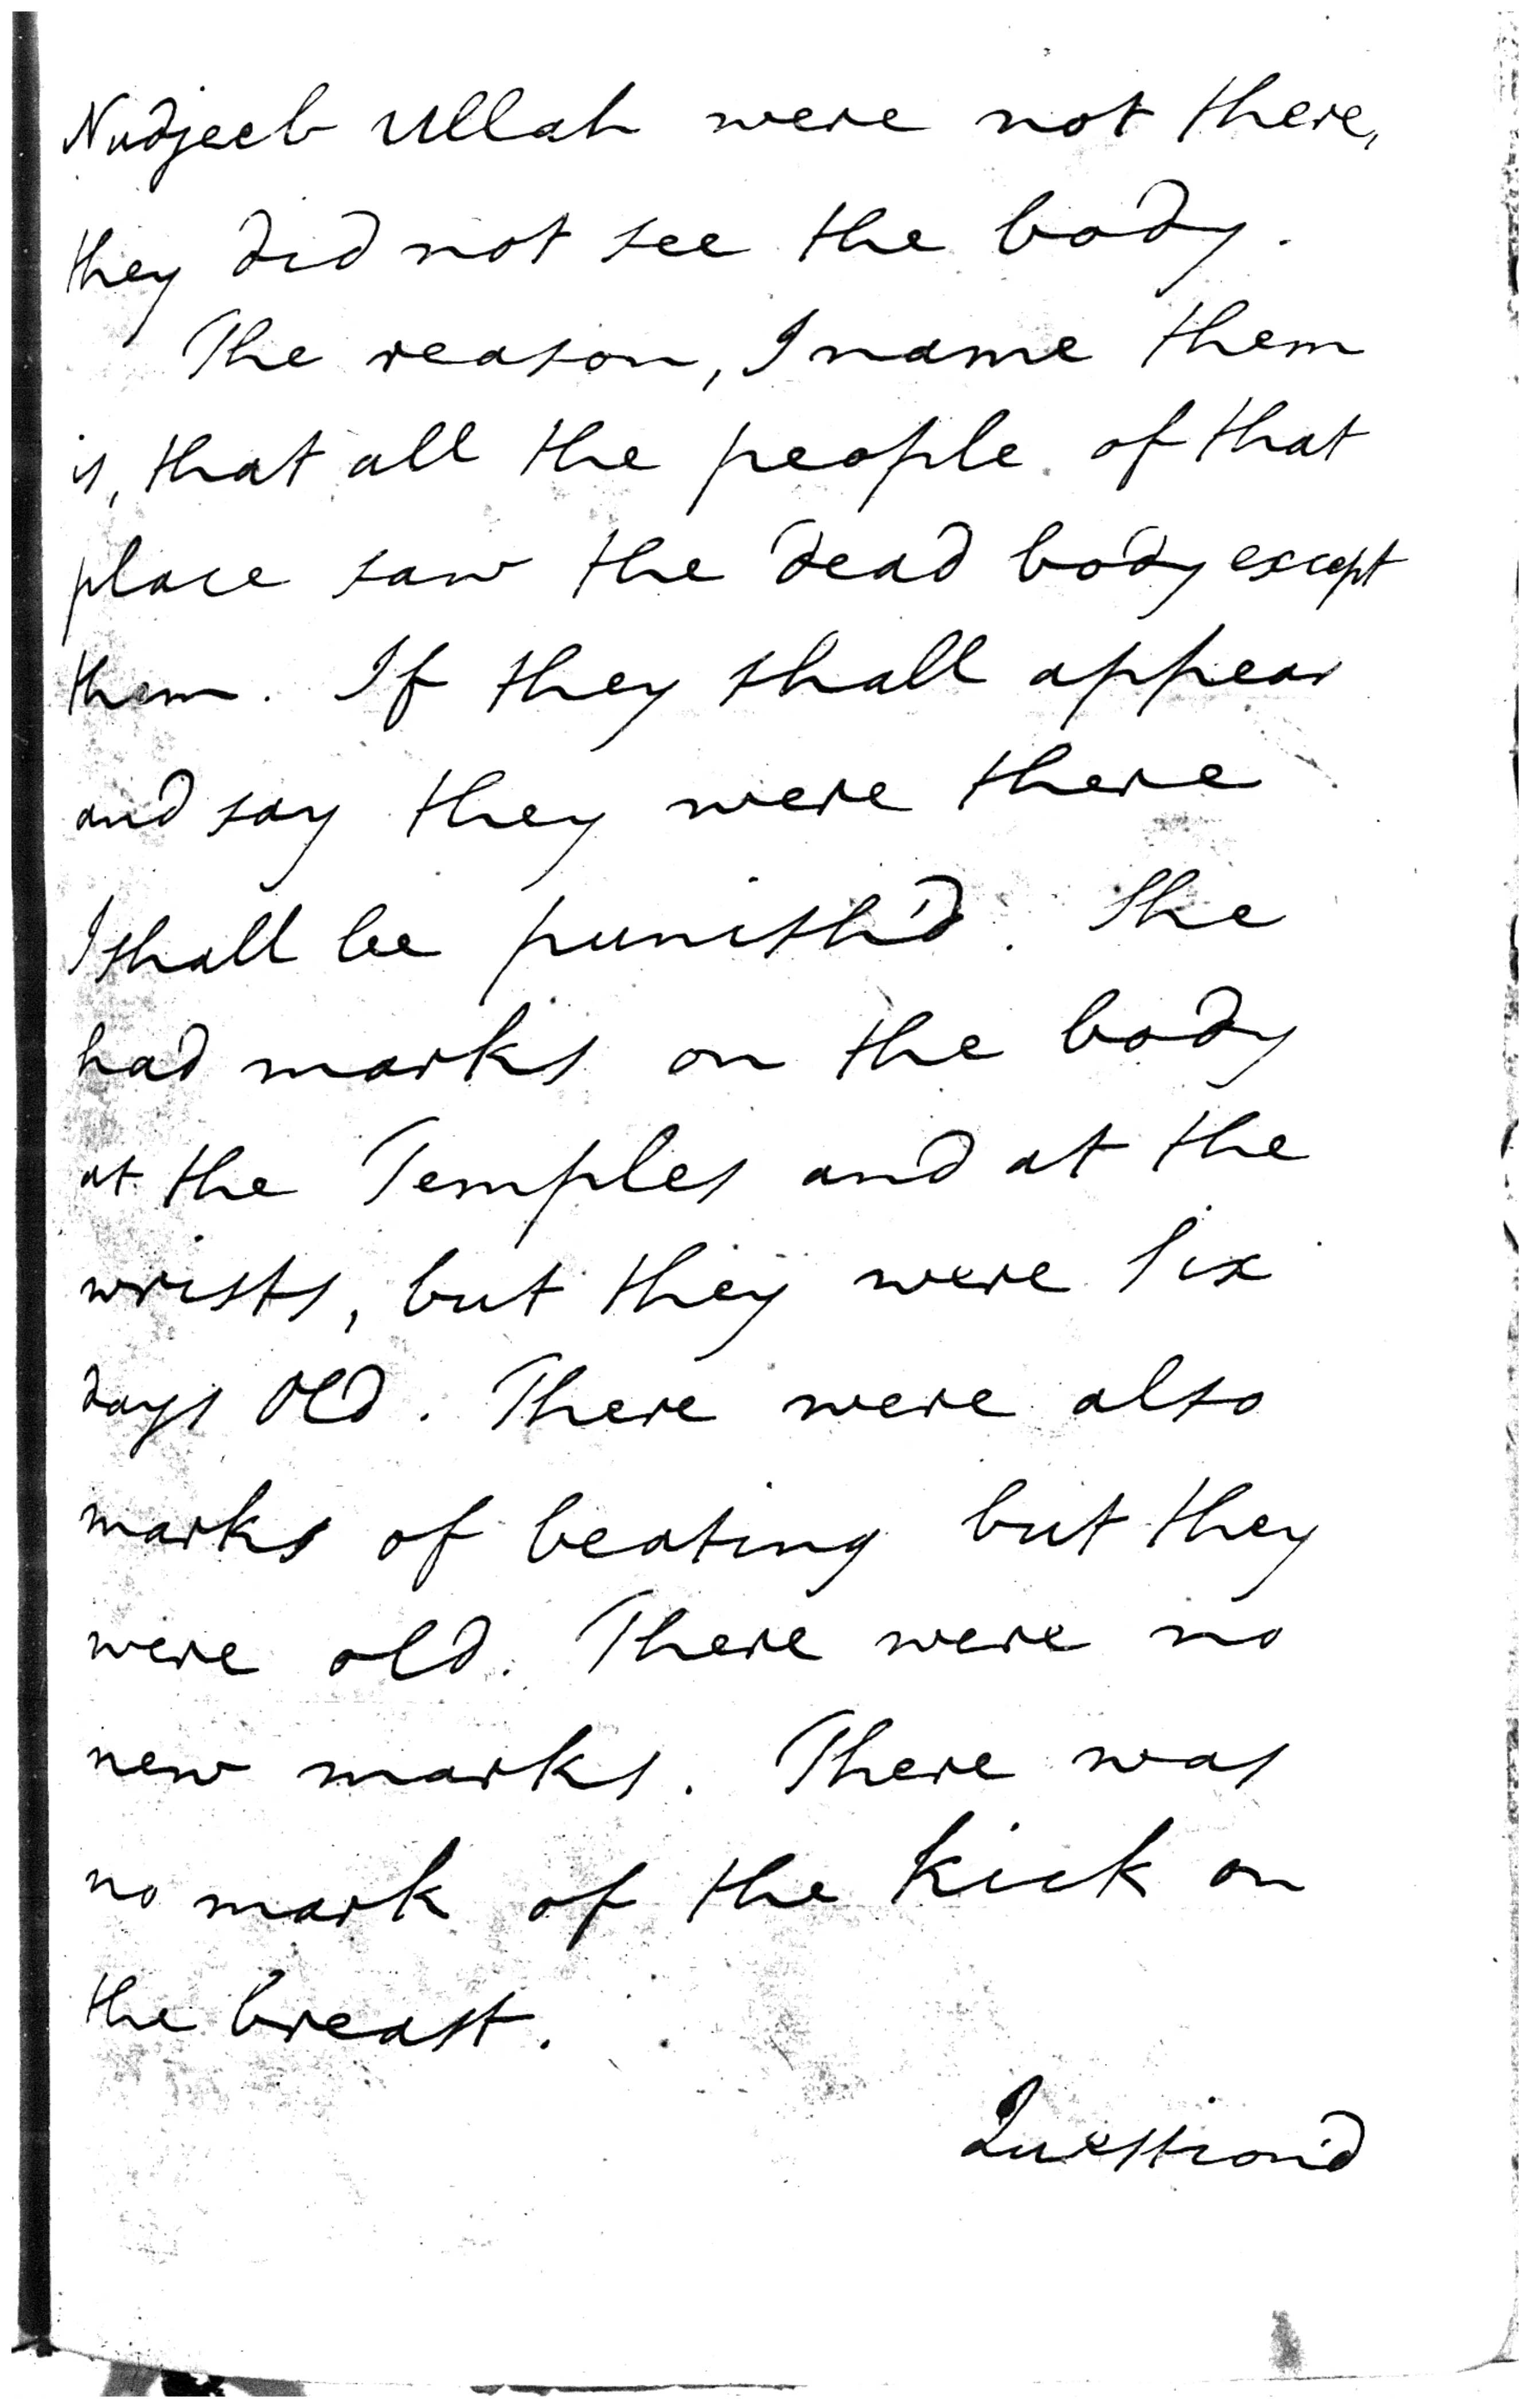 Nudjeeb Ullah were not there,
they did not see the body.
The reason, I name them
is, that all the people of that
place saw the dead body except
them. If they shall appear
and say they were there
I shall be punish'd. She
had marks on the body
at the Temples and at the
wrists, but they were Six
days Old. There were also
marks of beating but they
were old. There were no
new marks. There was
no mark of the kick on
the breast.
Question'd